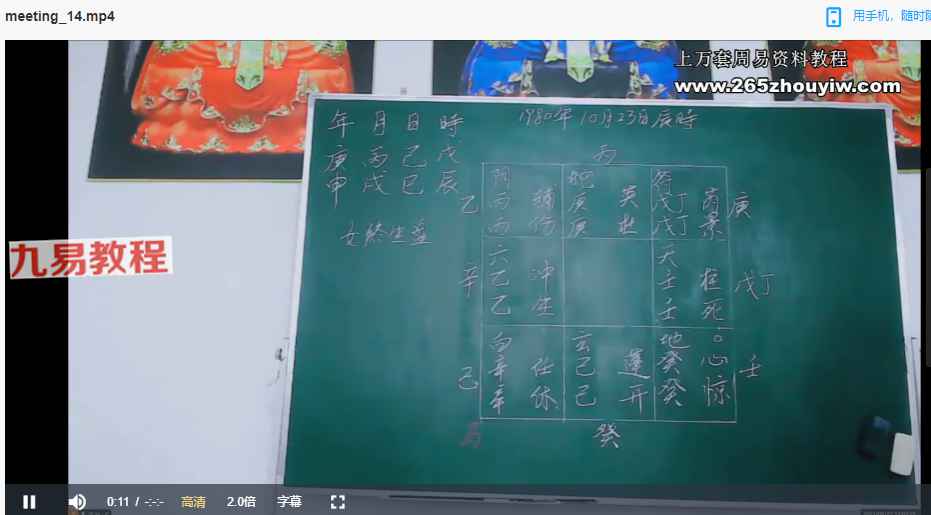 meeting_14.mp4
用手机，随时随
上万套周易资料教程
www.265zhouyiw.com
九易教程
年 月 日 時
1980年 10月23日 辰時
庚 丙 己 戊
申 戌 巳 辰
女終生盘
丙
乙 陰 輔 蛇 英 符 芮 庚
丙 庚 庚 杜 戊丁 景
丙 傷 戊丁
辛 六 冲 天 柱 戊丁
乙 生 壬 死
乙 壬
己 白 任 玄 蓬 地 心 壬
辛 休 己 开 癸 惊
辛 己 癸
癸
0:11 / -:-:-
高清
2.0倍
字幕